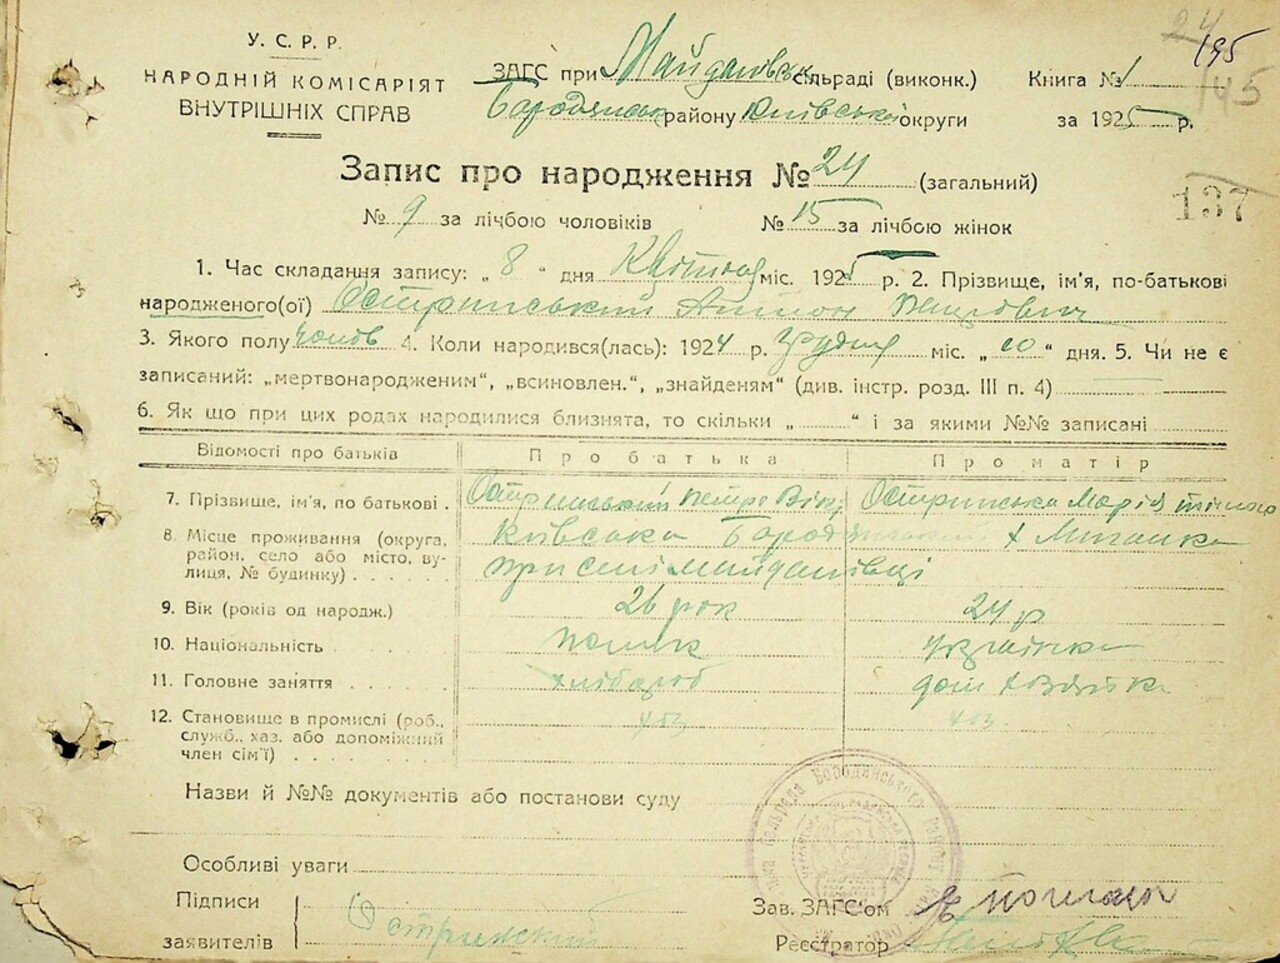 У.С.Р.Р.
НАРОДНІЙ КОМІСАРІЯТ
ВНУТРІШНІХ СПРАВ
ЗАГС при Майданівск сільраді (виконк.)
Бородянськ району Київської округи
Книга № 1
за 1925 р.
24
195
145
137
Запис про народження № 24 (загальний)
№ 9 за лічбою чоловіків № 15 за лічбою жінок
1. Час складання запису: „ 8 “ дня Квітня міс. 1925 р. 2. Прізвище, ім'я, по-батькові
народженого(ої) Остринський Антон Петрович
3. Якого полу чолов 4. Коли народився(лась): 1924 р. Грудня міс. „ 20 “ дня. 5. Чи не є
записаний: „мертвонародженим“, „всиновлен.“, „знайденям“ (див. інстр. розд. III п. 4)
6. Як що при цих родах народилися близнята, то скільки „ “ і за якими №№ записані
Відомості про батьків Про батька Про матір
7. Прізвище, ім'я, по батькові . Остринський Петро Вік Остринська Марія
8. Місце проживання (округа, район, село або місто, вулиця, № будинку) Київська Бородянський х
при селі Майданівці
9. Вік (років од народж.) 26 рок 24 р
10. Національність поляк українка
11. Головне заняття хлібороб дом хозяйка
12. Становище в промислі (роб., служб., хаз. або допоміжний член сім'ї) хоз хоз
Назви й №№ документів або постанови суду
Особливі уваги
Підписи
заявителів Остринский
Зав. ЗАГС'ом
Реєстратор